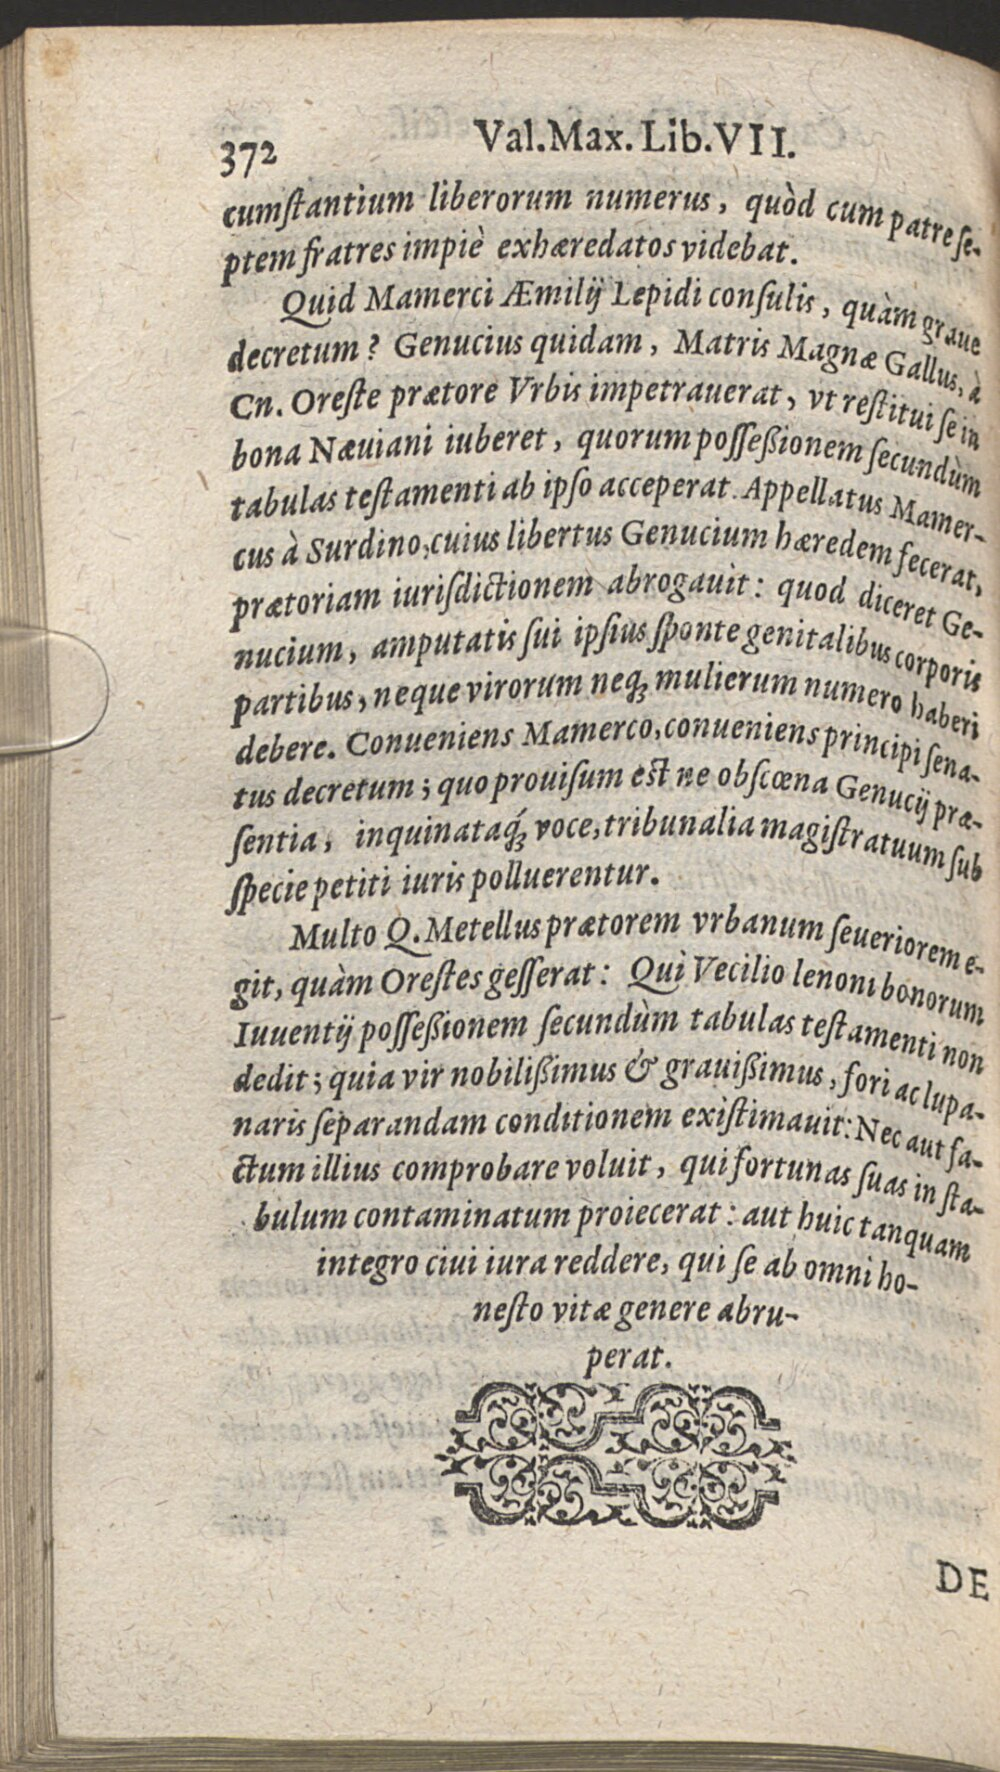 372 Val.Max.Lib.VII.
cumſtantium liberorum numerus, quòd cum patre ſe-
ptem fratres impiè exhæredatos videbat.
Quid Mamerci Æmilij Lepidi conſulis, quàm graue
decretum? Genucius quidam, Matris Magnæ Gallus, à
Cn. Oreſte prætore Vrbis impetrauerat, vt reſtitui ſe in
bona Næuiani iuberet, quorum poſſeßionem ſecundùm
tabulas teſtamenti ab ipſo acceperat. Appellatus Mamer-
cus à Surdino, cuius libertus Genucium hæredem fecerat,
prætoriam iuriſdictionem abrogauit: quod diceret Ge-
nucium, amputatis ſui ipſius ſponte genitalibus corporis
partibus, neque virorum neq; mulierum numero haberi
debere. Conueniens Mamerco, conueniens principi ſena-
tus decretum; quo prouiſum est ne obſcœna Genucij præ-
ſentia, inquinataq́; voce, tribunalia magiſtratuum ſub
ſpecie petiti iuris polluerentur.
Multo Q. Metellus prætorem vrbanum ſeueriorem e-
git, quàm Oreſtes geſſerat: Quì Vecilio lenoni bonorum
Iuuentij poſſeßionem ſecundùm tabulas teſtamenti non
dedit; quia vir nobilißimus & grauißimus, fori ac lupa-
naris ſeparandam conditionem exiſtimauit: Nec aut fa-
ctum illius comprobare voluit, qui fortunas ſuas in ſta-
bulum contaminatum proiecerat: aut huic tanquam
integro ciui iura reddere, qui ſe ab omni ho-
neſto vitæ genere abru-
perat.
DE